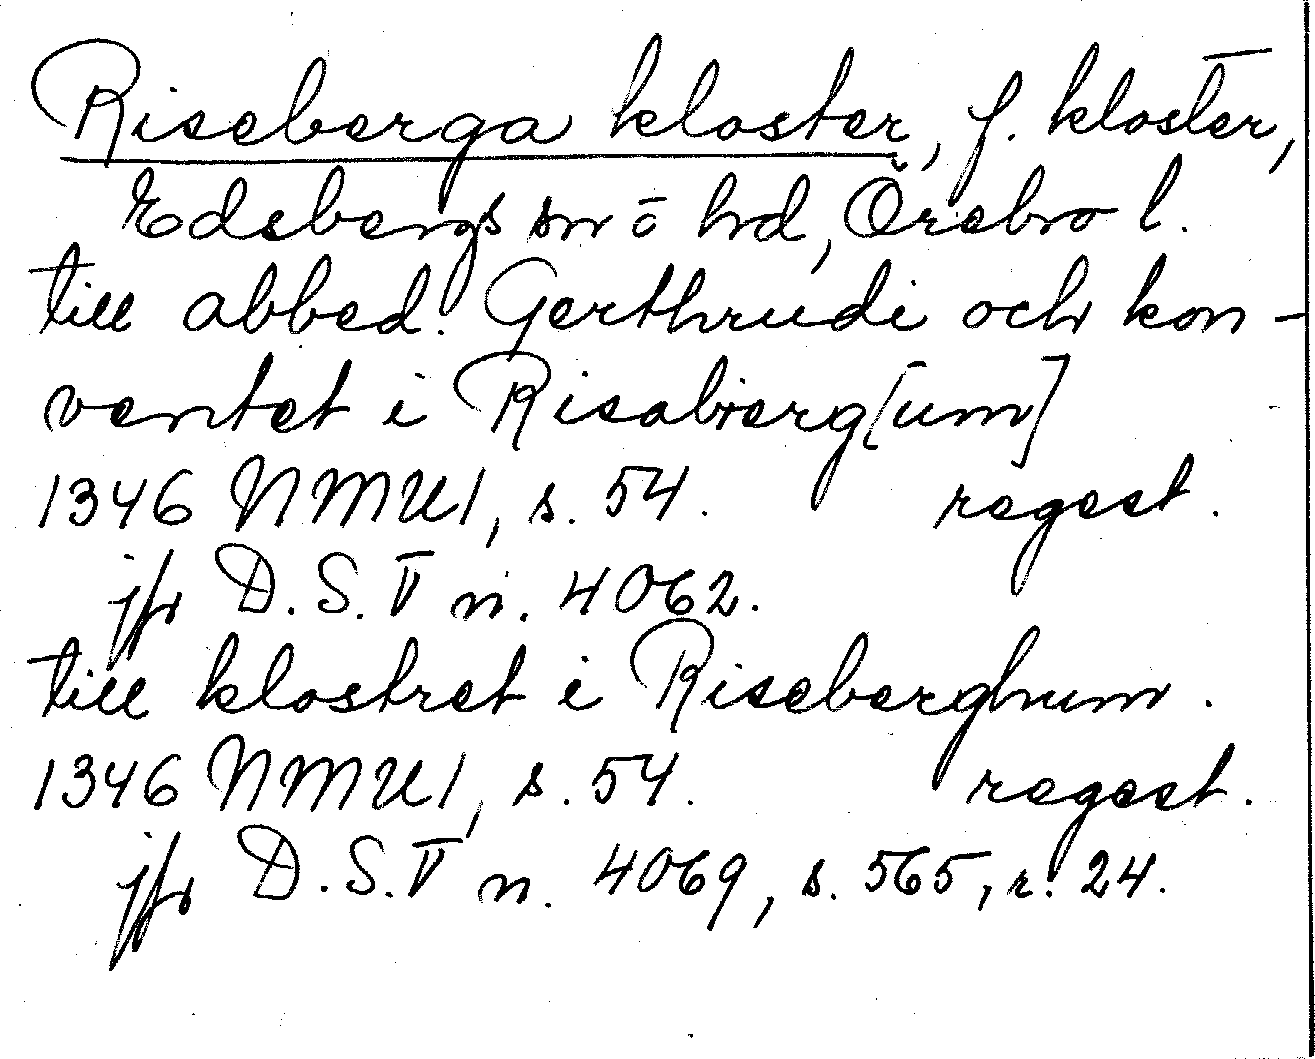 Riseberga kloster, f. kloster,
Edsbergs sn o hd, Örebro l.
till abbed. Gerthrudi och kon-
ventet i Risabierg[um]
1346 NMU1, s. 54. regest.
jfr D.S. V n. 4062.
till klostret i Riseberghum.
1346 NMU1, s. 54. regest.
jfr D.S. V n. 4069, s. 565, r. 24.